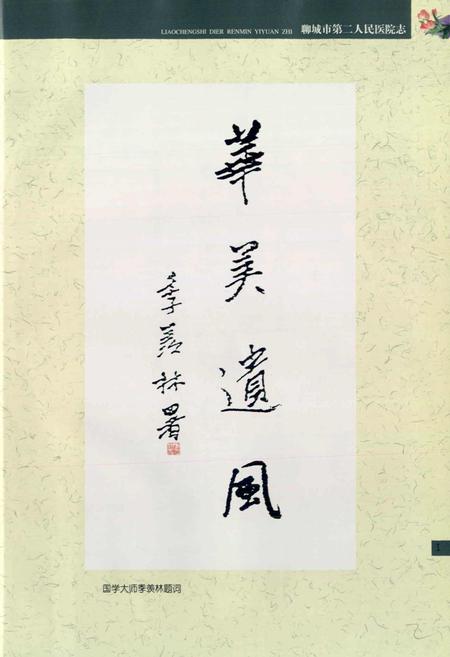 LIAOCHENGSHI DIER RENMIN YIYUAN ZHI 聊城市第二人民医院志
華美遺風
季羡林署
1
国学大师季羡林题词